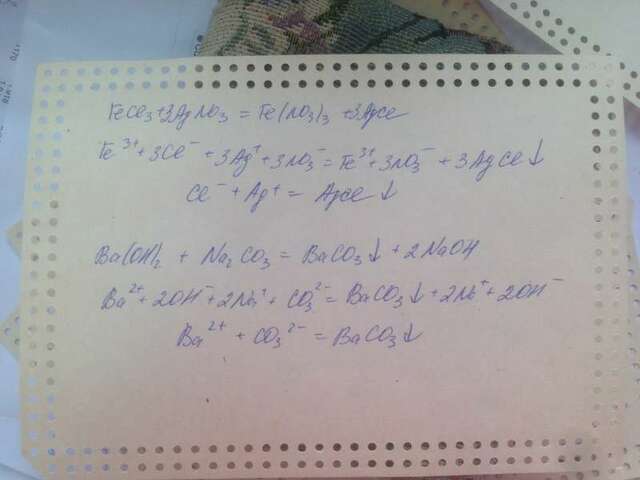 FeCl₃+3AgNO₃ = Fe(NO₃)₃ +3AgCl
Fe³⁺+3Cl⁻+3Ag⁺+3NO₃⁻=Fe³⁺+3NO₃⁻+3AgCl↓
Cl⁻+Ag⁺=AgCl↓
Ba(OH)₂ + Na₂CO₃ = BaCO₃↓+2NaOH
Ba²⁺+2OH⁻+2Na⁺+CO₃²⁻=BaCO₃↓+2Na⁺+2OH⁻
Ba²⁺+CO₃²⁻=BaCO₃↓